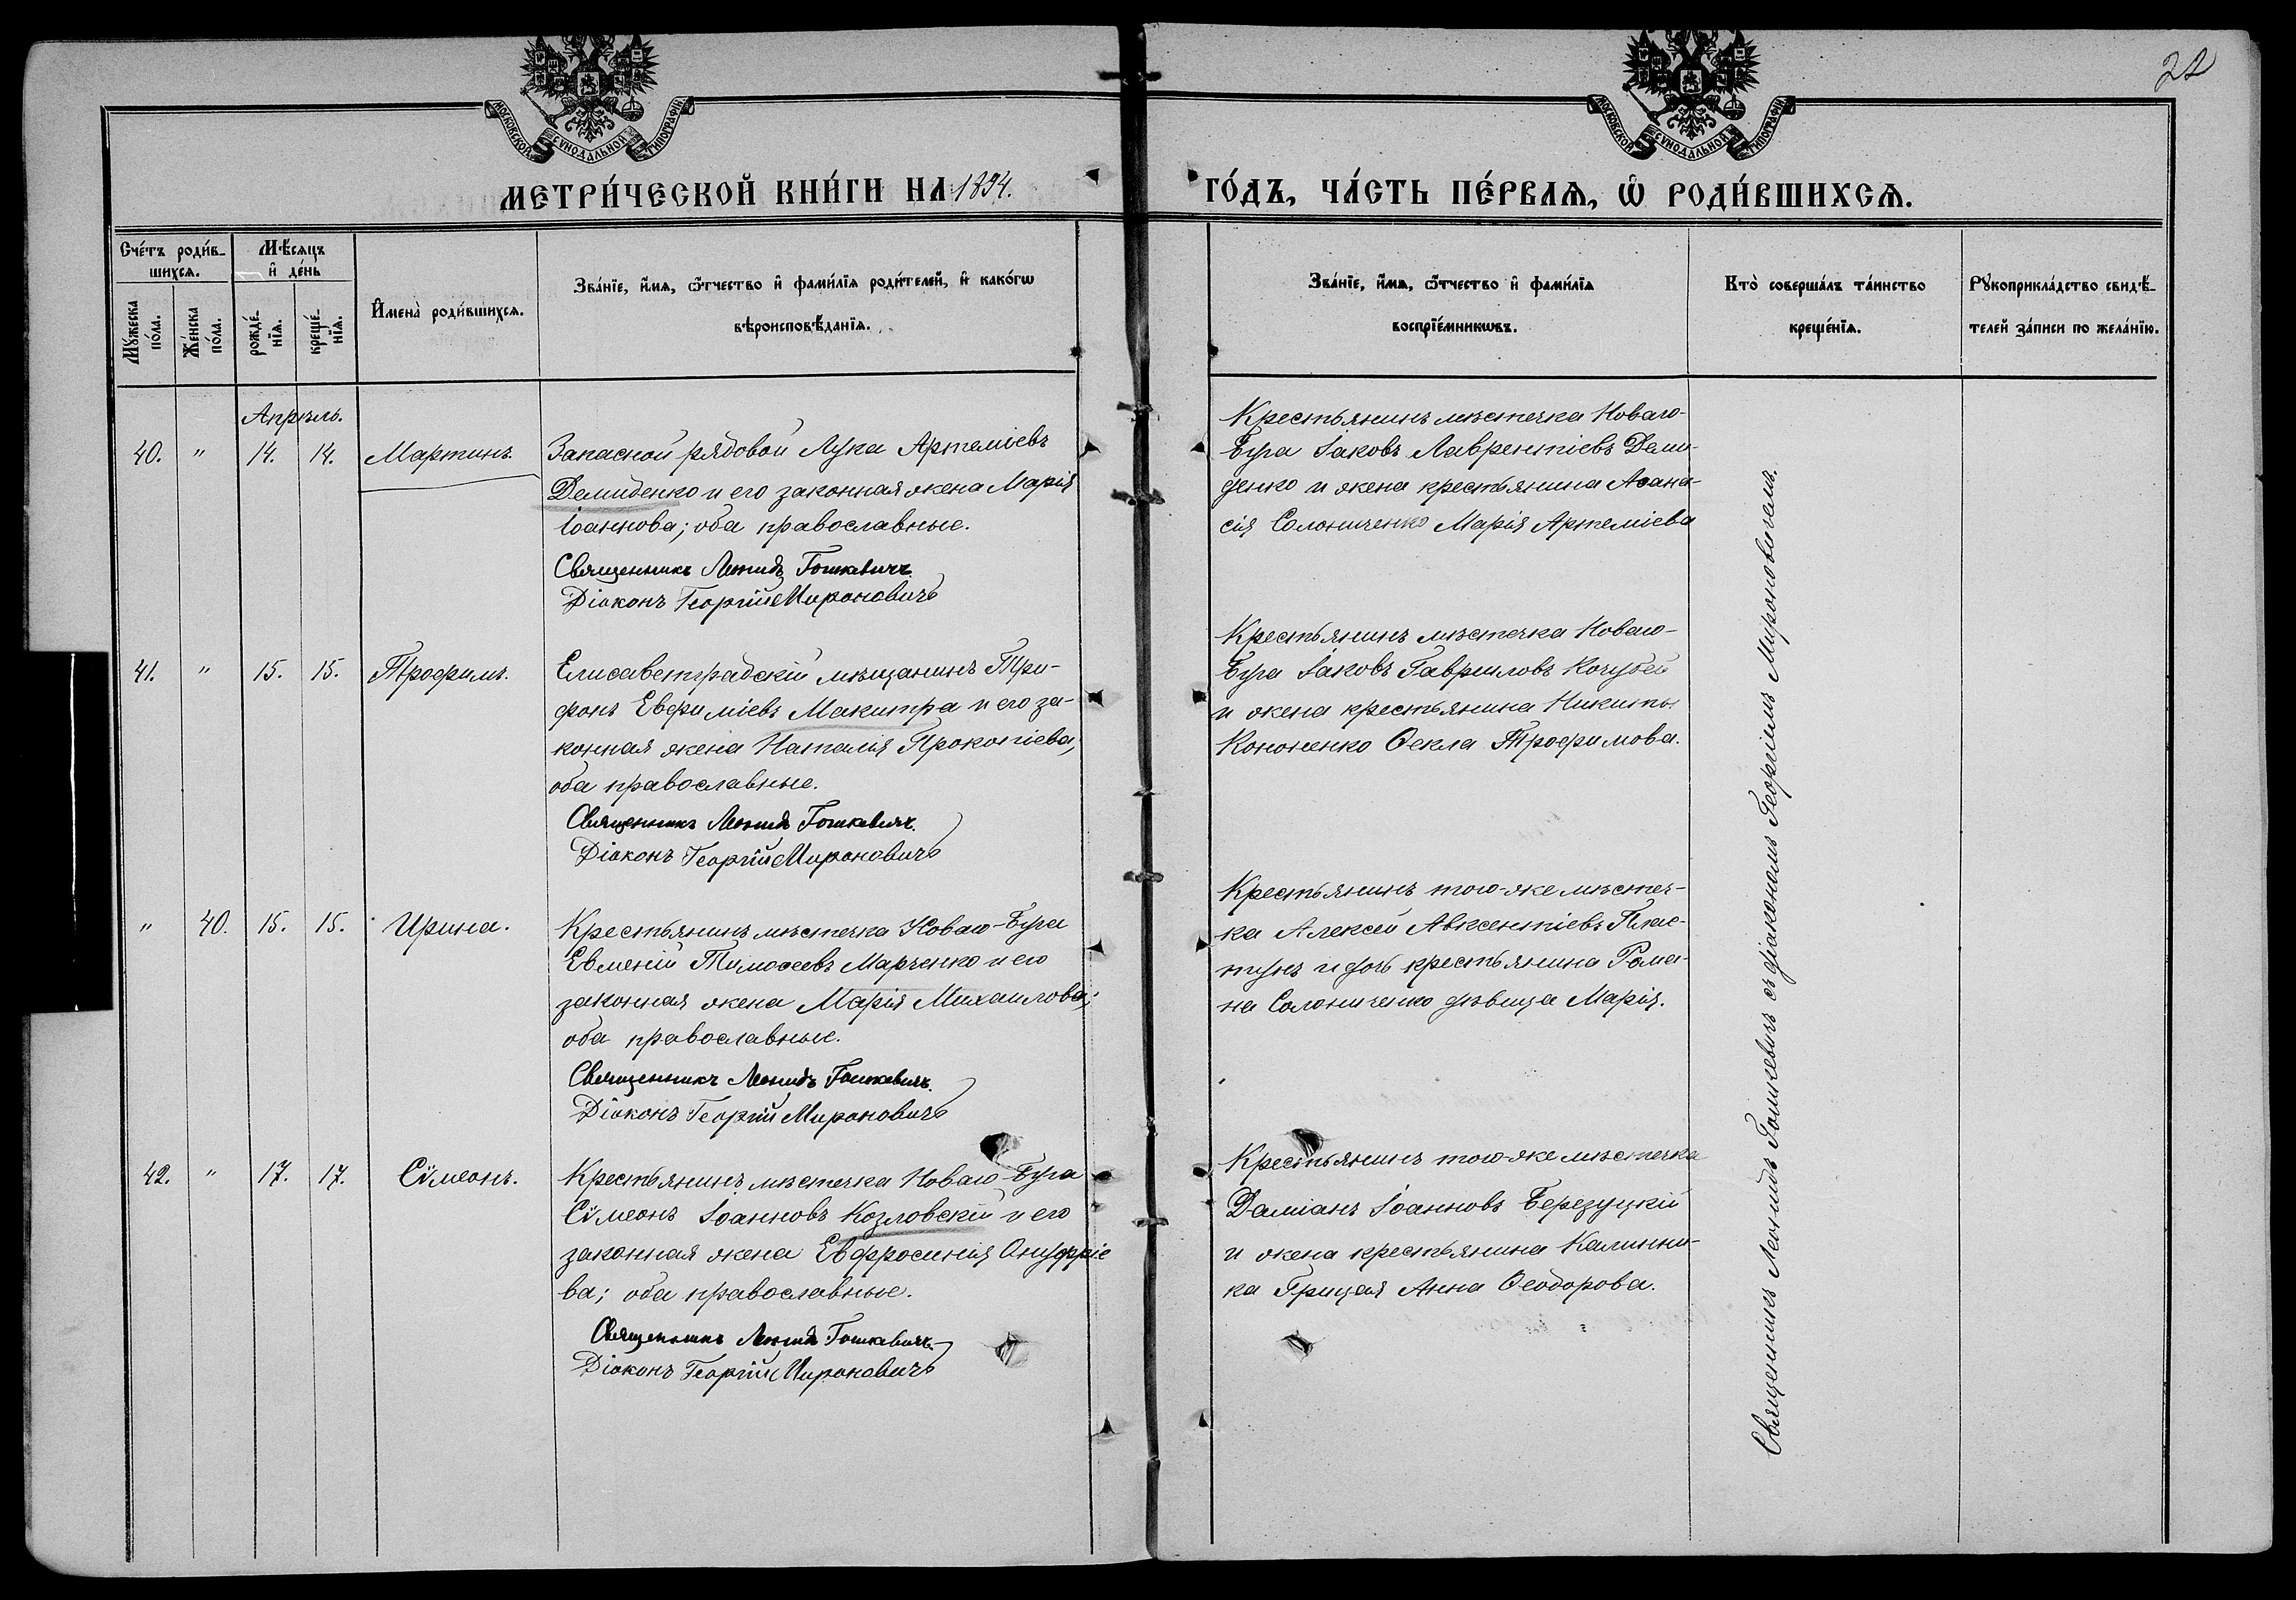 22
МОСКОВСКОЙ СѴНОДАЛЬНОЙ ТИПОГРАФІИ
МОСКОВСКОЙ СѴНОДАЛЬНОЙ ТИПОГРАФІИ
МЕТРИ́ЧЕСКОЙ КНИ́ГИ НА 1894.
ГО́ДЪ, ЧА́СТЬ ПЕ́РВАѦ, Ѽ РОДИ́ВШИХСѦ.
Сче́тъ роди́в-
шихсѧ.
Мѣ́сѧцъ
и҆ де́нь
Мꙋ́жеска
по́ла.
Же́нска
по́ла.
рожде́-
нїѧ.
креще́-
нїѧ.
И҆мена̀ роди́вшихсѧ.
Зва́нїе, и҆́мѧ, ѻ҆́тчество и҆ фами́лїѧ роди́телей, и҆ како́гѡ
вѣроисповѣ́данїѧ.
Зва́нїе, и҆́мѧ, ѻ҆́тчество и҆ фами́лїѧ
воспрїе́мникѡвъ.
Кто̀ соверша́лъ та́инство
креще́нїѧ.
Рꙋкоприкла́дство свидѣ́-
телей за́писи по жела́нїю.
Апрѣль.
40. " 14. 14. Мартинъ.
Запасной рядовой Лука Артеміевъ
Демиденко и его законная жена Марія
Іоаннова; оба православные.
Священникъ Леонидъ Гошкевичъ
Діаконъ Георгій Мироновичъ
Крестьянинъ мѣстечка Новаго-
Буга Іаковъ Лаврентіевъ Деми-
денко и жена крестьянина Аѳана-
сія Солониченко Марія Артеміева
41. " 15. 15. Трофимъ.
Елисаветградскій мѣщанинъ Три-
фонъ Евфиміевъ Макитра и его за-
конная жена Наталія Прокопіева;
оба православные.
Священникъ Леонидъ Гошкевичъ.
Діаконъ Георгій Мироновичъ
Крестьянинъ мѣстечка Новаго-
Буга Іаковъ Гавриловъ Кочубей
и жена крестьянина Никиты
Кононенко Ѳекла Трофимова.
" 40. 15. 15. Ирина.
Крестьянинъ мѣстечка Новаго-Буга
Евменій Тимоѳеевъ Марченко и его
законная жена Марія Михаилова;
оба православные.
Священникъ Леонидъ Гошкевичъ.
Діаконъ Георгій Мироновичъ
Крестьянинъ того-же мѣстеч-
ка Алексей Авксентіевъ Плас-
тунъ и дочь крестьянина Рома-
на Солониченко дѣвица Марія.
42. " 17. 17. Сѵмеонъ.
Крестьянинъ мѣстечка Новаго-Буга
Сѵмеонъ Іоанновъ Козловскій и его
законная жена Евфросинія Онуфріе
ва; оба православные.
Священникъ Леонидъ Гошкевичъ.
Діаконъ Георгій Мироновичъ
Крестьянинъ того-же мѣстечка
Даміанъ Іоанновъ Березуцкій
и жена крестьянина Калинни-
ка Грицая Анна Ѳеодорова.
Священникъ Леонидъ Гошкевичъ съ діакономъ Георгіемъ Мироновичемъ.